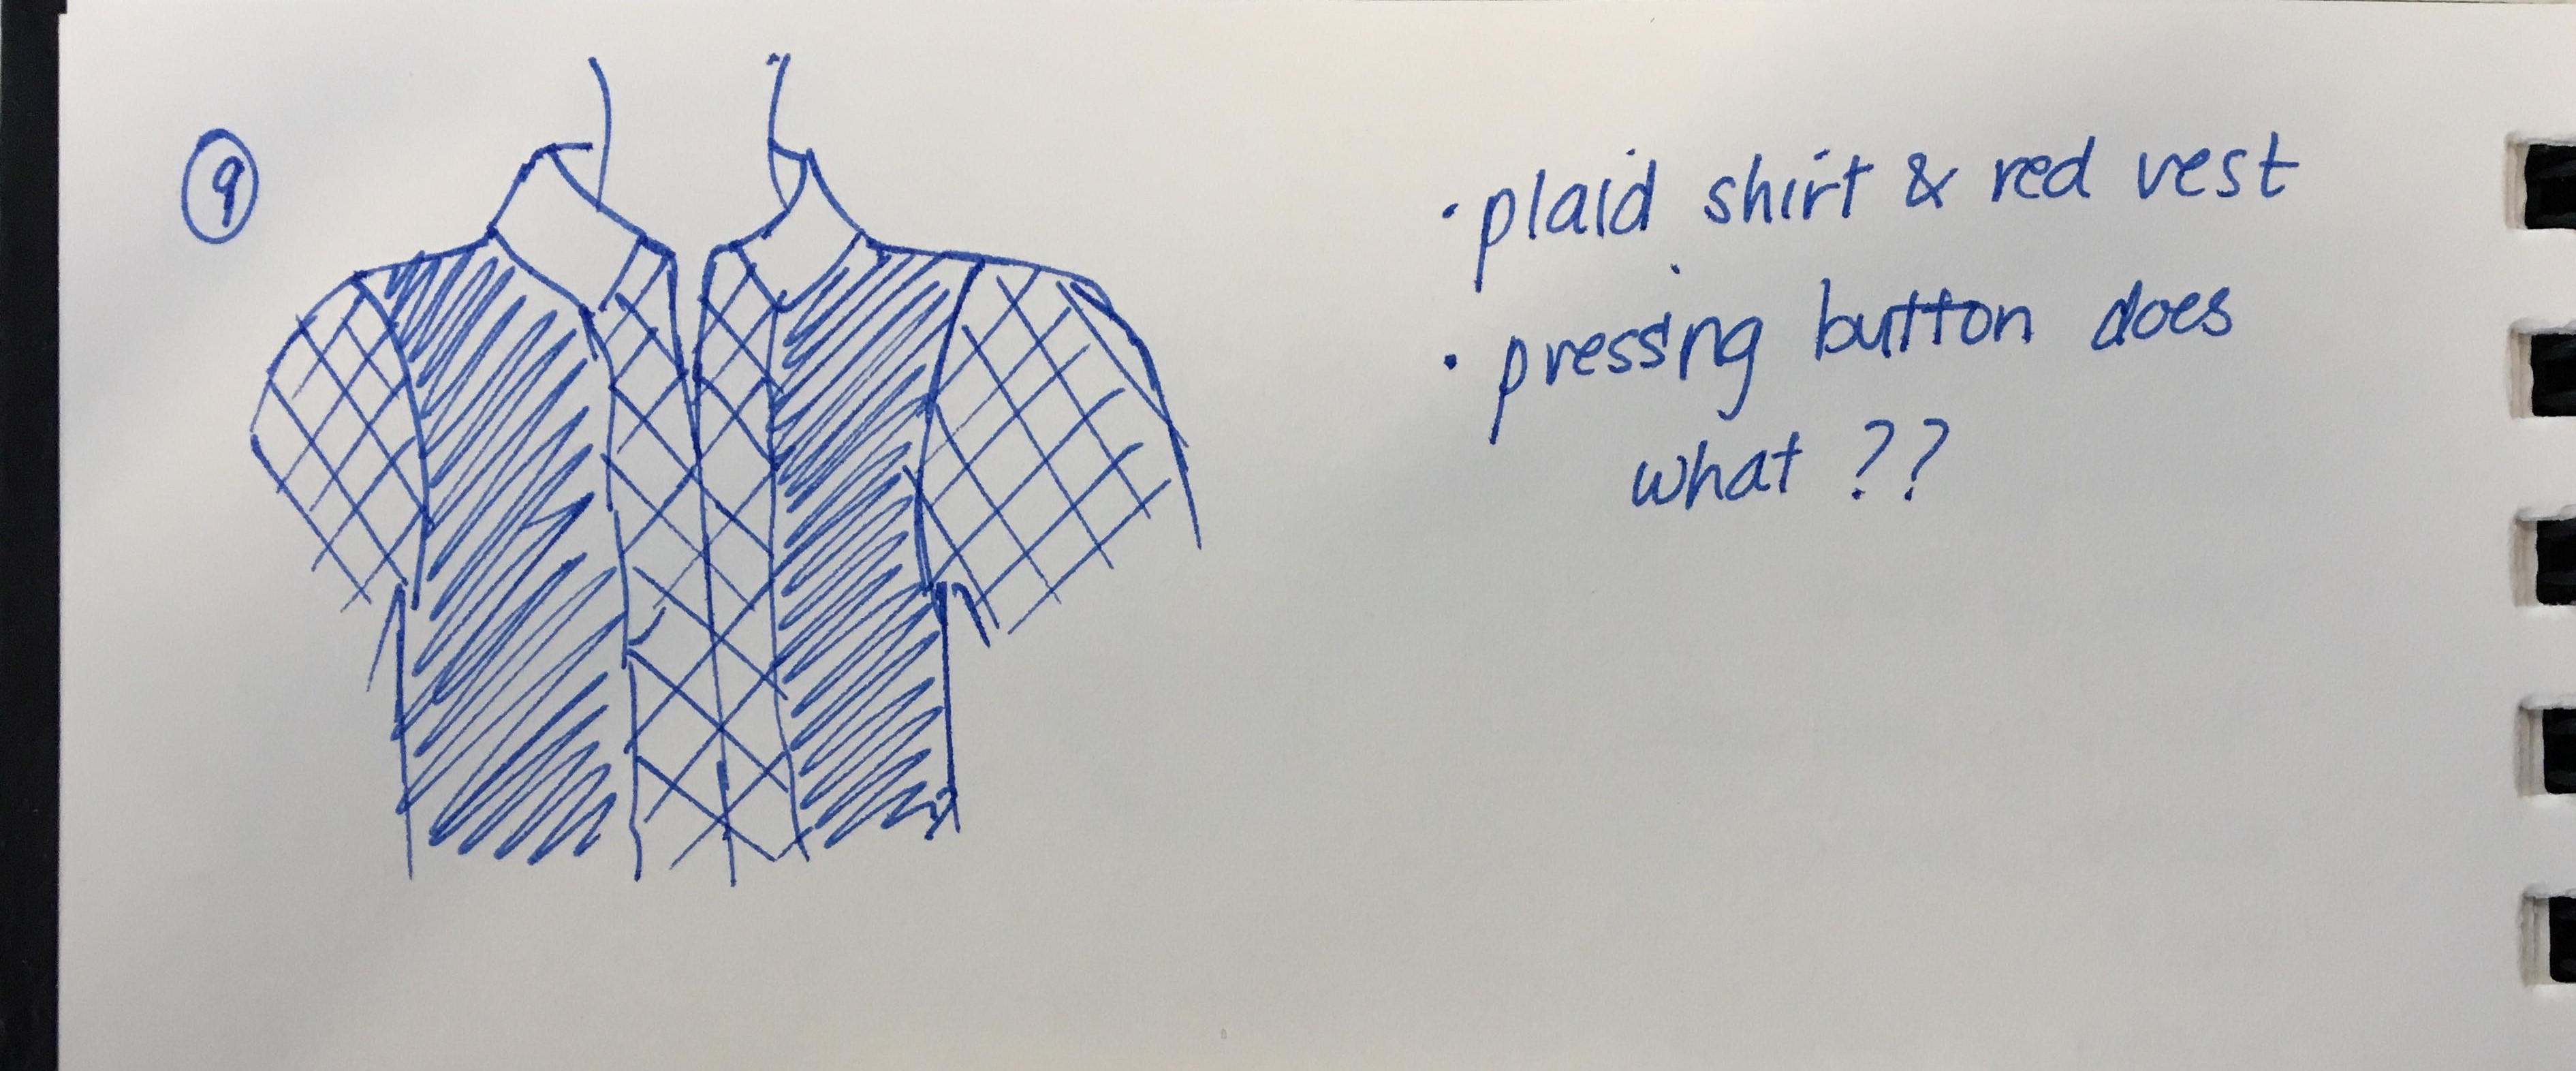 9
• plaid shirt & red vest
• pressing button does
what ??